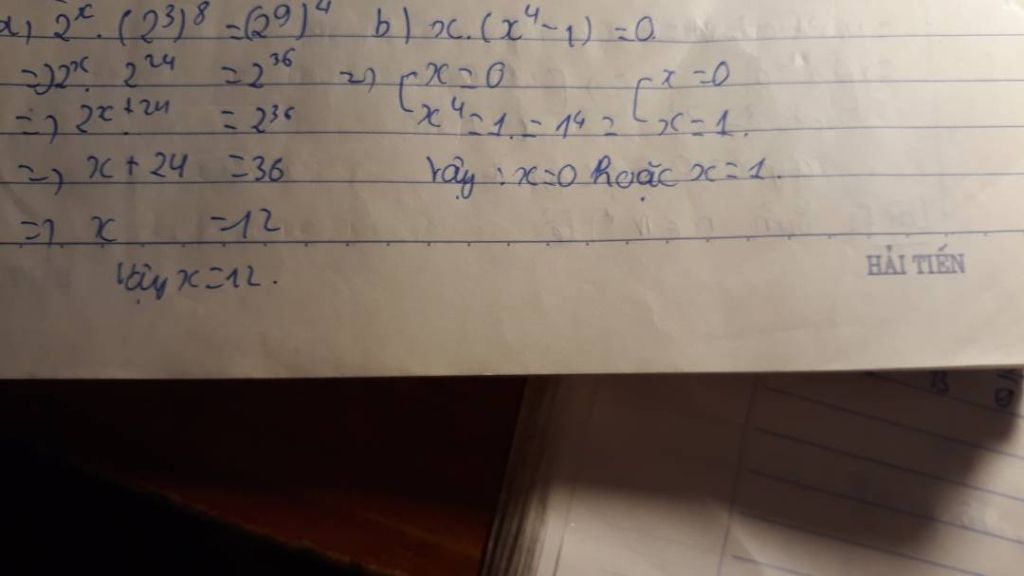 a) 2^x . (2^3)^8 = (2^9)^4
=> 2^x . 2^24 = 2^36
=> 2^x+24 = 2^36
=> x + 24 = 36
=> x = 12
Vậy x = 12.
b) x. (x^4 - 1) = 0
=> [ x = 0 [ x = 0
x^4 = 1 = 1^4 = x = 1.
Vậy : x = 0 hoặc x = 1.
HẢI TIẾN